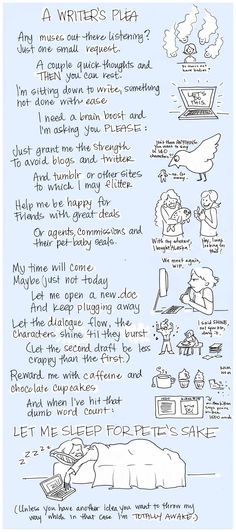 A WRITER'S PLEA
Any muses out there listening?
Just one small request.
A couple quick thoughts and
THEN you can rest.
I'm sitting down to write, something
not done with ease
I need a brain boost and
I'm asking you PLEASE:
LET'S
THIS.
Just grant me the strength
To avoid blogs and twitter
And tumblr or other sites
to which I may flitter
Help me be happy for
Friends with great deals
Or agents, commissions and
their pet baby seals.
We meet again,
WIP.
My time will come
Maybe just not today
Let me open a new .doc
And keep plugging away
Let the dialogue flow, the
characters shine til they burst
I said SHINE,
(Let the second draft be less
crappy than the first.)
Reward me with caffeine and
chocolate cupcakes
NOM
And when I've hit that
dumb word count:
LET ME SLEEP FOR PETE'S SAKE
ZZZZ
(Unless you have another idea you want to throw my
way which in that case I'm TOTALLY AWAKE.)